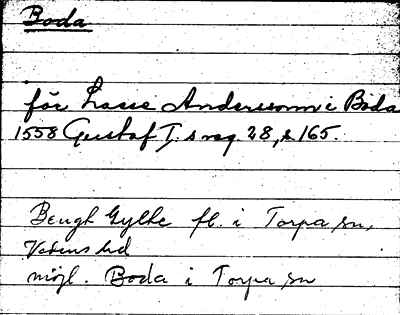 Boda
för Lasse Andersson i Boda
1558 Gustaf I.s reg. 28, s 165.
Bengt Gylte fl. i Torpa sn,
Vedens hd
möjl. Boda i Torpa sn